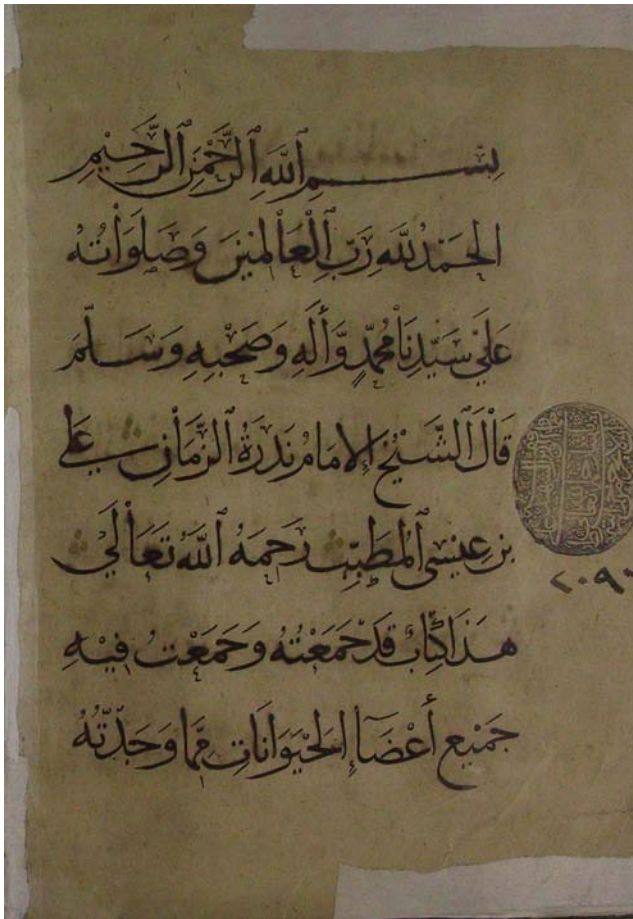 بِسْمِ اللَّهِ الرَّحْمَنِ الرَّحِيمِ
الحَمْدُ للَّهِ رَبِّ الْعَالَمِينَ وَصَلَوَاتُهُ
عَلَى سَيِّدِنَا مُحَمَّدٍ وَّألِهِ وَصَحْبِهِ وَسَلَّمَ
قَالَ الشَّيْخُ الإمَامُ نَدْرَةُ الزَّمَانِ عَلي
بن عِيسَى المُطَبِّب رَحِمَهُ اللَّهُ تَعَالَى
هَذَا كِتَابٌ قَدْ جَمَعْتُهُ وَجَمَعْتُ فِيْهِ
جَمِيعَ أعْضَاءِ الحَيَوَانَاتِ مِمَّا وَجَدْتُهُ
٢٠٩٠